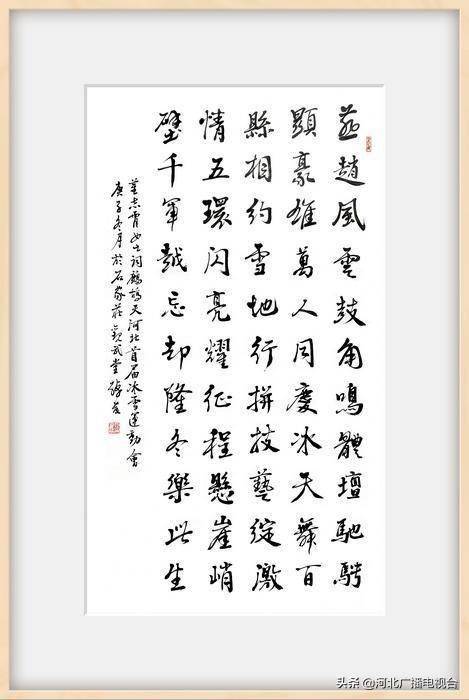 燕趙風雲鼓角鳴體壇馳騁
顯豪雄萬人同慶冰天舞百
縣相約雪地行拼技藝綻激
情五環閃亮耀征程懸崖峭
壁千軍越忘却隆冬樂此生
女士词鷓鴣天河北首届冰雪運動會
庚子冬月於石家莊
头条 @河北广播电视台